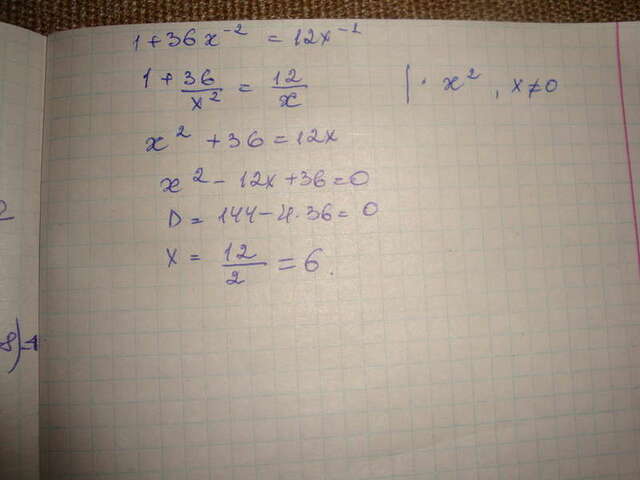 1+36x⁻² = 12x⁻¹
1 + 36/x² = 12/x | · x² , x≠0
x² + 36 = 12x
x² - 12x + 36 = 0
D = 144 - 4·36 = 0
x = 12/2 = 6.
8)-1